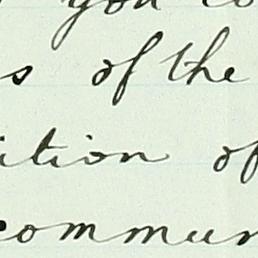 you co
s of the
ition of
commun